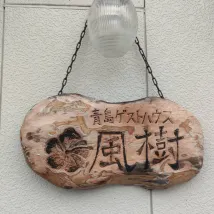 青島ゲストハウス
風樹